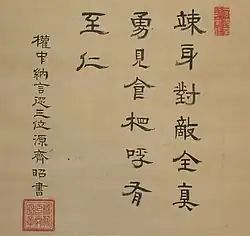 竦身對敵全真
勇見食杷呼肴
至仁
權中納言從三位源齊昭書